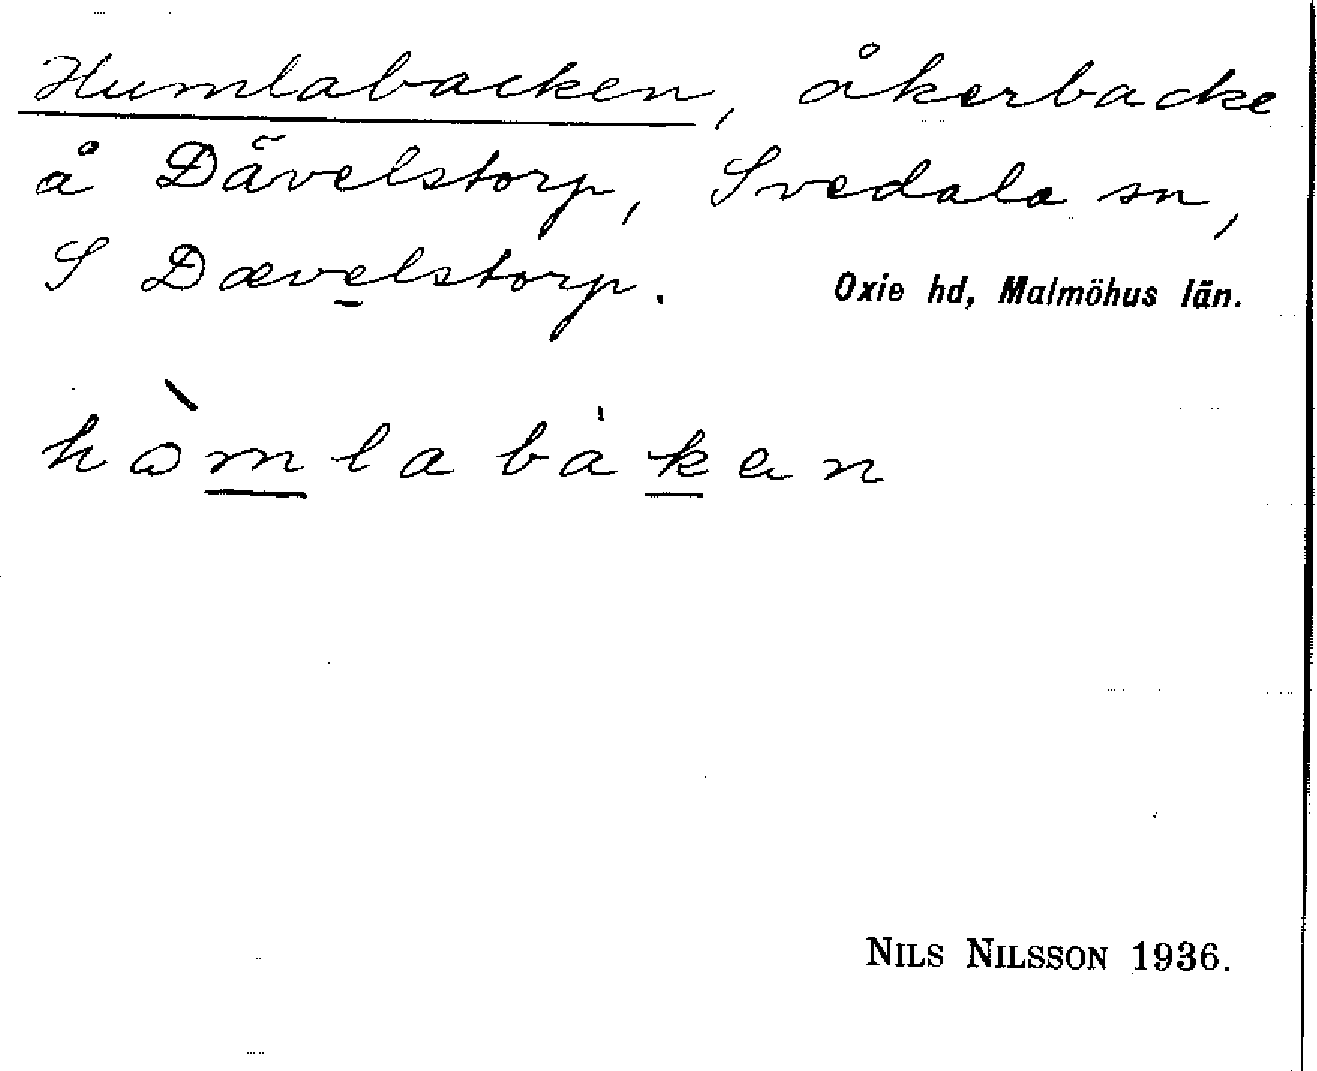 Humlabacken, åkerbacke
å Dävelstorp, Svedala sn,
S Dævelstorp.
Oxie hd, Malmöhus län.
hòmlabàkan
NILS NILSSON 1936.